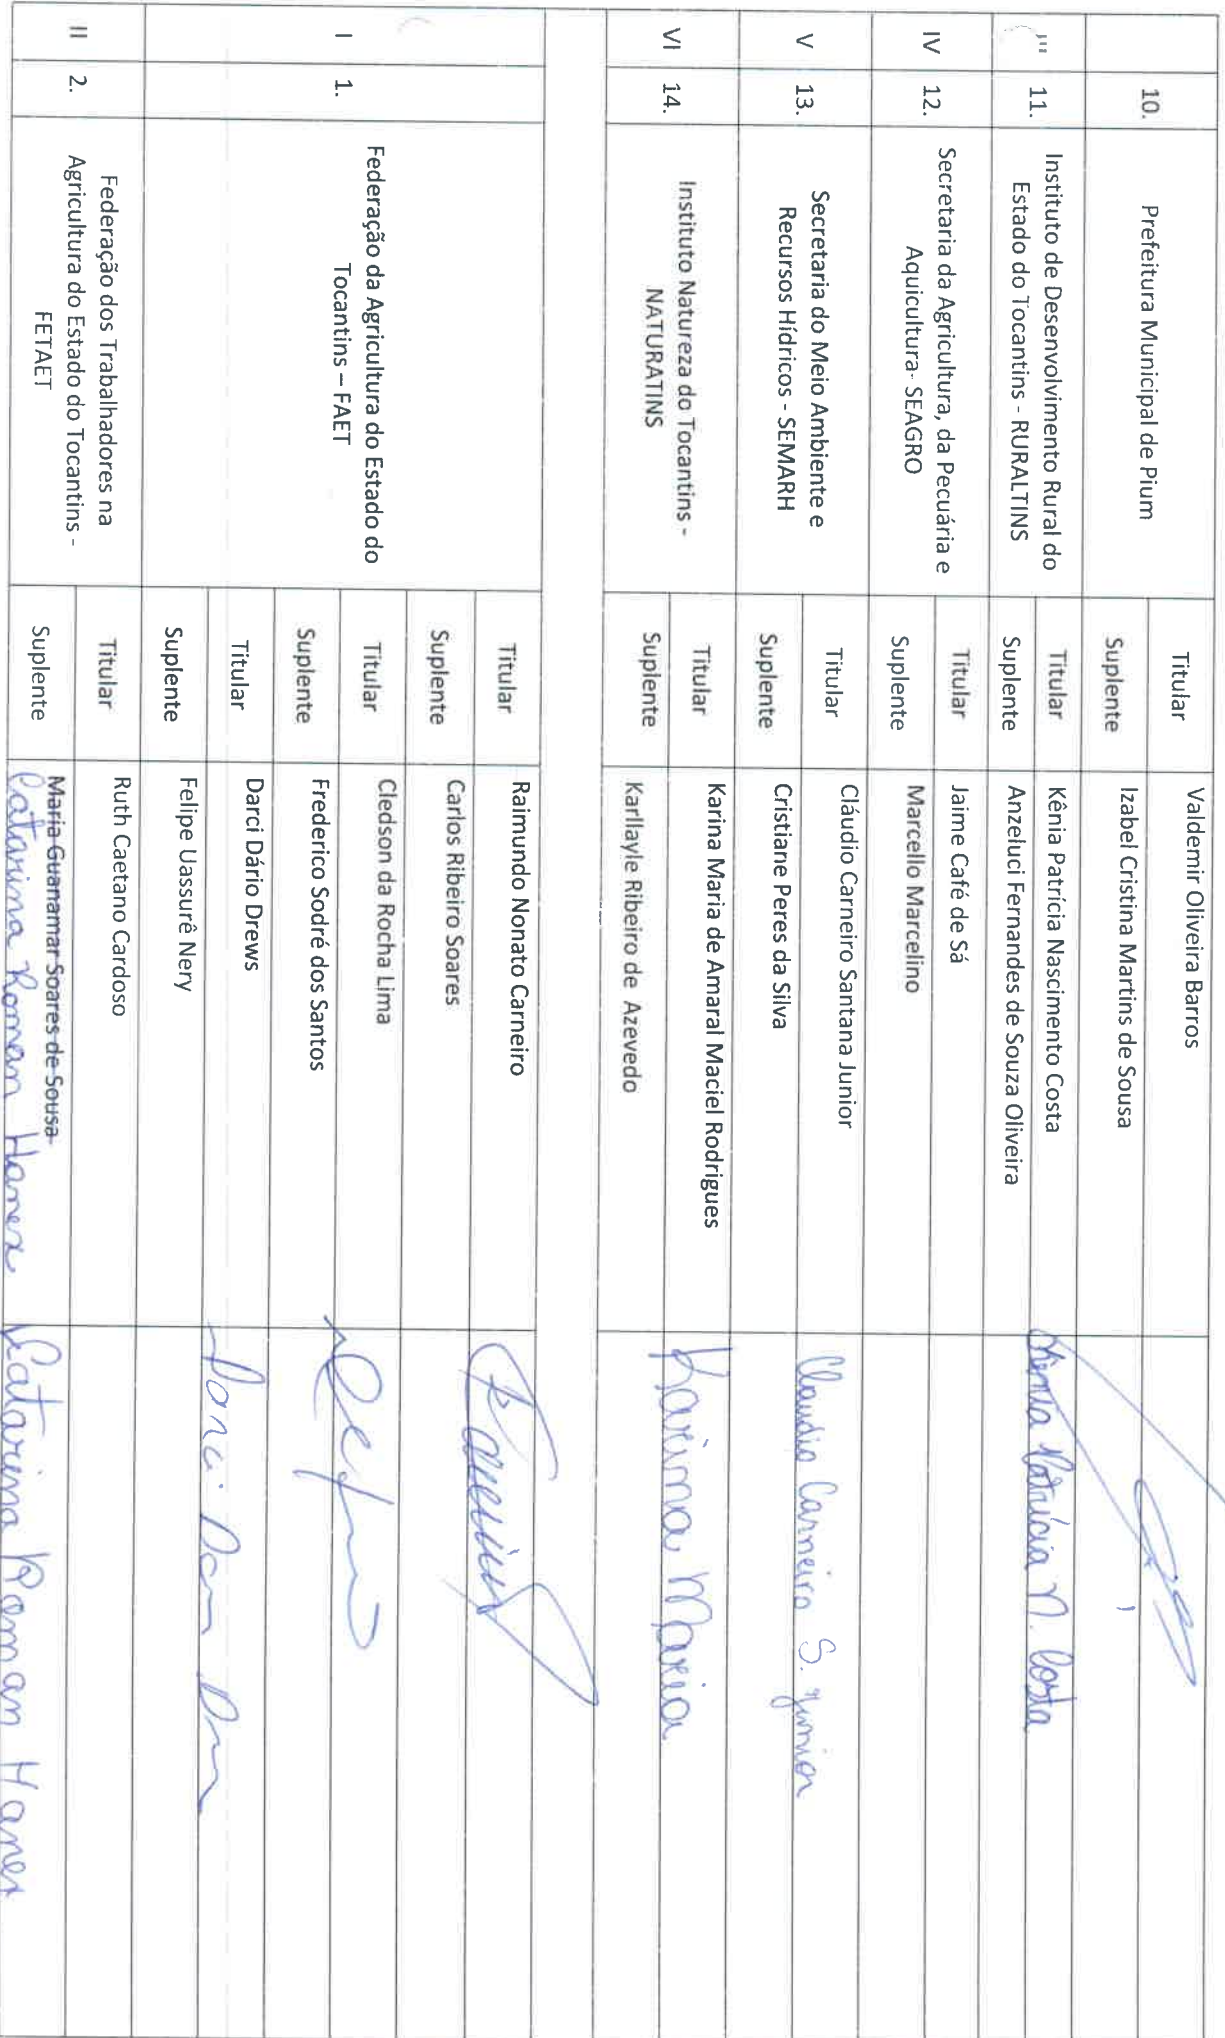 10.
Prefeitura Municipal de Pium
Titular
Valdemir Oliveira Barros
Suplente
Izabel Cristina Martins de Sousa
III
11.
Instituto de Desenvolvimento Rural do
Estado do Tocantins - RURALTINS
Titular
Kênia Patrícia Nascimento Costa
Kênia Patrícia N. Costa
Suplente
Anzeluci Fernandes de Souza Oliveira
IV
12.
Secretaria da Agricultura, da Pecuária e
Aquicultura- SEAGRO
Titular
Jaime Café de Sá
Suplente
Marcello Marcelino
V
13.
Secretaria do Meio Ambiente e
Recursos Hídricos - SEMARH
Titular
Cláudio Carneiro Santana Junior
Claudio Carneiro S. Junior
Suplente
Cristiane Peres da Silva
VI
14.
Instituto Natureza do Tocantins -
NATURATINS
Titular
Karina Maria de Amaral Maciel Rodrigues
Karina Maria
Suplente
Karllayle Ribeiro de Azevedo
I
1.
Federação da Agricultura do Estado do
Tocantins – FAET
Titular
Raimundo Nonato Carneiro
Suplente
Carlos Ribeiro Soares
Titular
Cledson da Rocha Lima
Suplente
Frederico Sodré dos Santos
Titular
Darci Dário Drews
Suplente
Felipe Uassurê Nery
II
2.
Federação dos Trabalhadores na
Agricultura do Estado do Tocantins -
FETAET
Titular
Ruth Caetano Cardoso
Suplente
Maria Guanamar Soares de Sousa
Catarina Roman Hanex
Catarina Roman Hanex